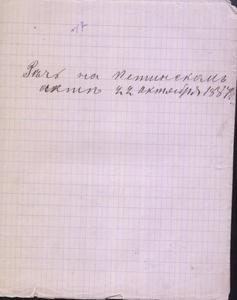 17
Рѣчь на Петинскомъ
актѣ 22 октября 1887.